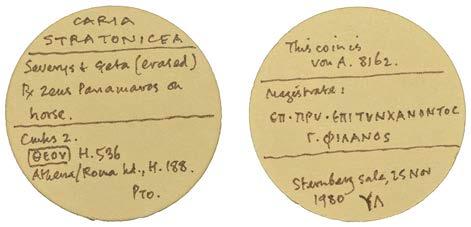 CARIA
STRATONICEA
Severus & Geta (erased)
Rx Zeus Panamaros on
horse.
Cmks 2.
ΘΕΟΥ H.536
Athena/Roma hd., H.188.
PTO.
This coin is
von A. 8162.
Magistrate:
ΕΠ·ΠΡΥ·ΕΠΙΤΥΝΧΑΝΟΝΤΟС
Γ. ΦΙΛΩΝΟС
Sternberg sale, 25 Nov
1980